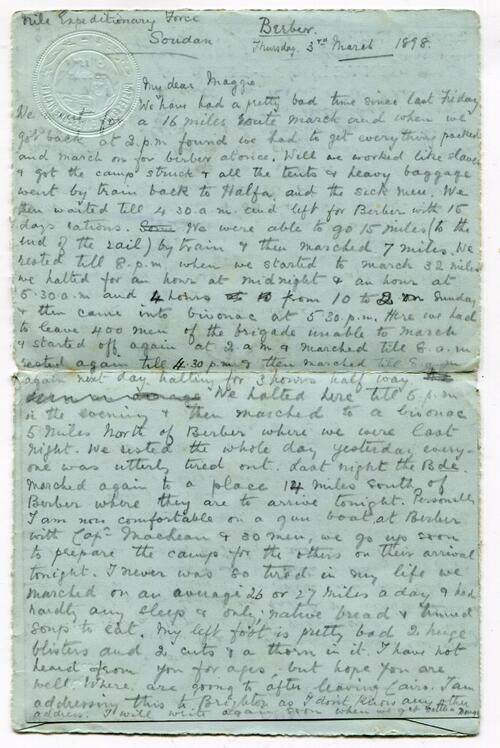 Nile Expeditionary Force
Soudan
Berber.
Thursday, 3rd March 1898.
My dear Maggie
We have had a pretty bad time since last Friday
We went for a 16 miles route march and when we
got back at 2.p.m. found we had to get everything packed
and march on for berber atonce. Well we worked like slaves
& got the camp struck & all the tents & heavy baggage
went by train back to Halfa, and the sick men. We
then waited till 4.30.a.m. and left for Berber with 15
days rations. We were able to go 15 miles (to the
end of the rail) by train & then marched 7 miles. We
rested till 8.p.m. when we started to march 32 miles
we halted for an hour at midnight & an hour at
5.30.a.m and 4 hours from 10 to 2 on Sunday
& then came into bivouac at 5.30.p.m. Here we had
to leave 400 men of the brigade unable to march
& started off again at 2.a.m & marched till 8.a.m.
rested again till 4.30.p.m & then marched till
again next day halting for 3 hours half way
We halted here till 6 p.m.
in the evening & then marched to a bivouac
5 miles North of Berber where we were last
night. We rested the whole day yesterday every-
one was utterly tired out. Last night the Bde.
marched again to a place 14 miles South of
Berber where they are to arrive tonight. Personally
I am now comfortable on a gun boat, at Berber
with Capt Maclean & 30 men, we go up soon
to prepare the camps for the others on their arrival
tonight. I never was so tired in my life we
marched on an average 26 or 27 miles a day & had
hardly any sleep & only native bread & tinned
soup to eat. My left foot is pretty bad 2 huge
blisters and 2 cuts & a thorn in it. I have not
heard from you for ages, but hope you are
well. Where are going to after leaving Cairo. I am
addressing this to Brighton as I dont know any other
address. I will write again soon when we get